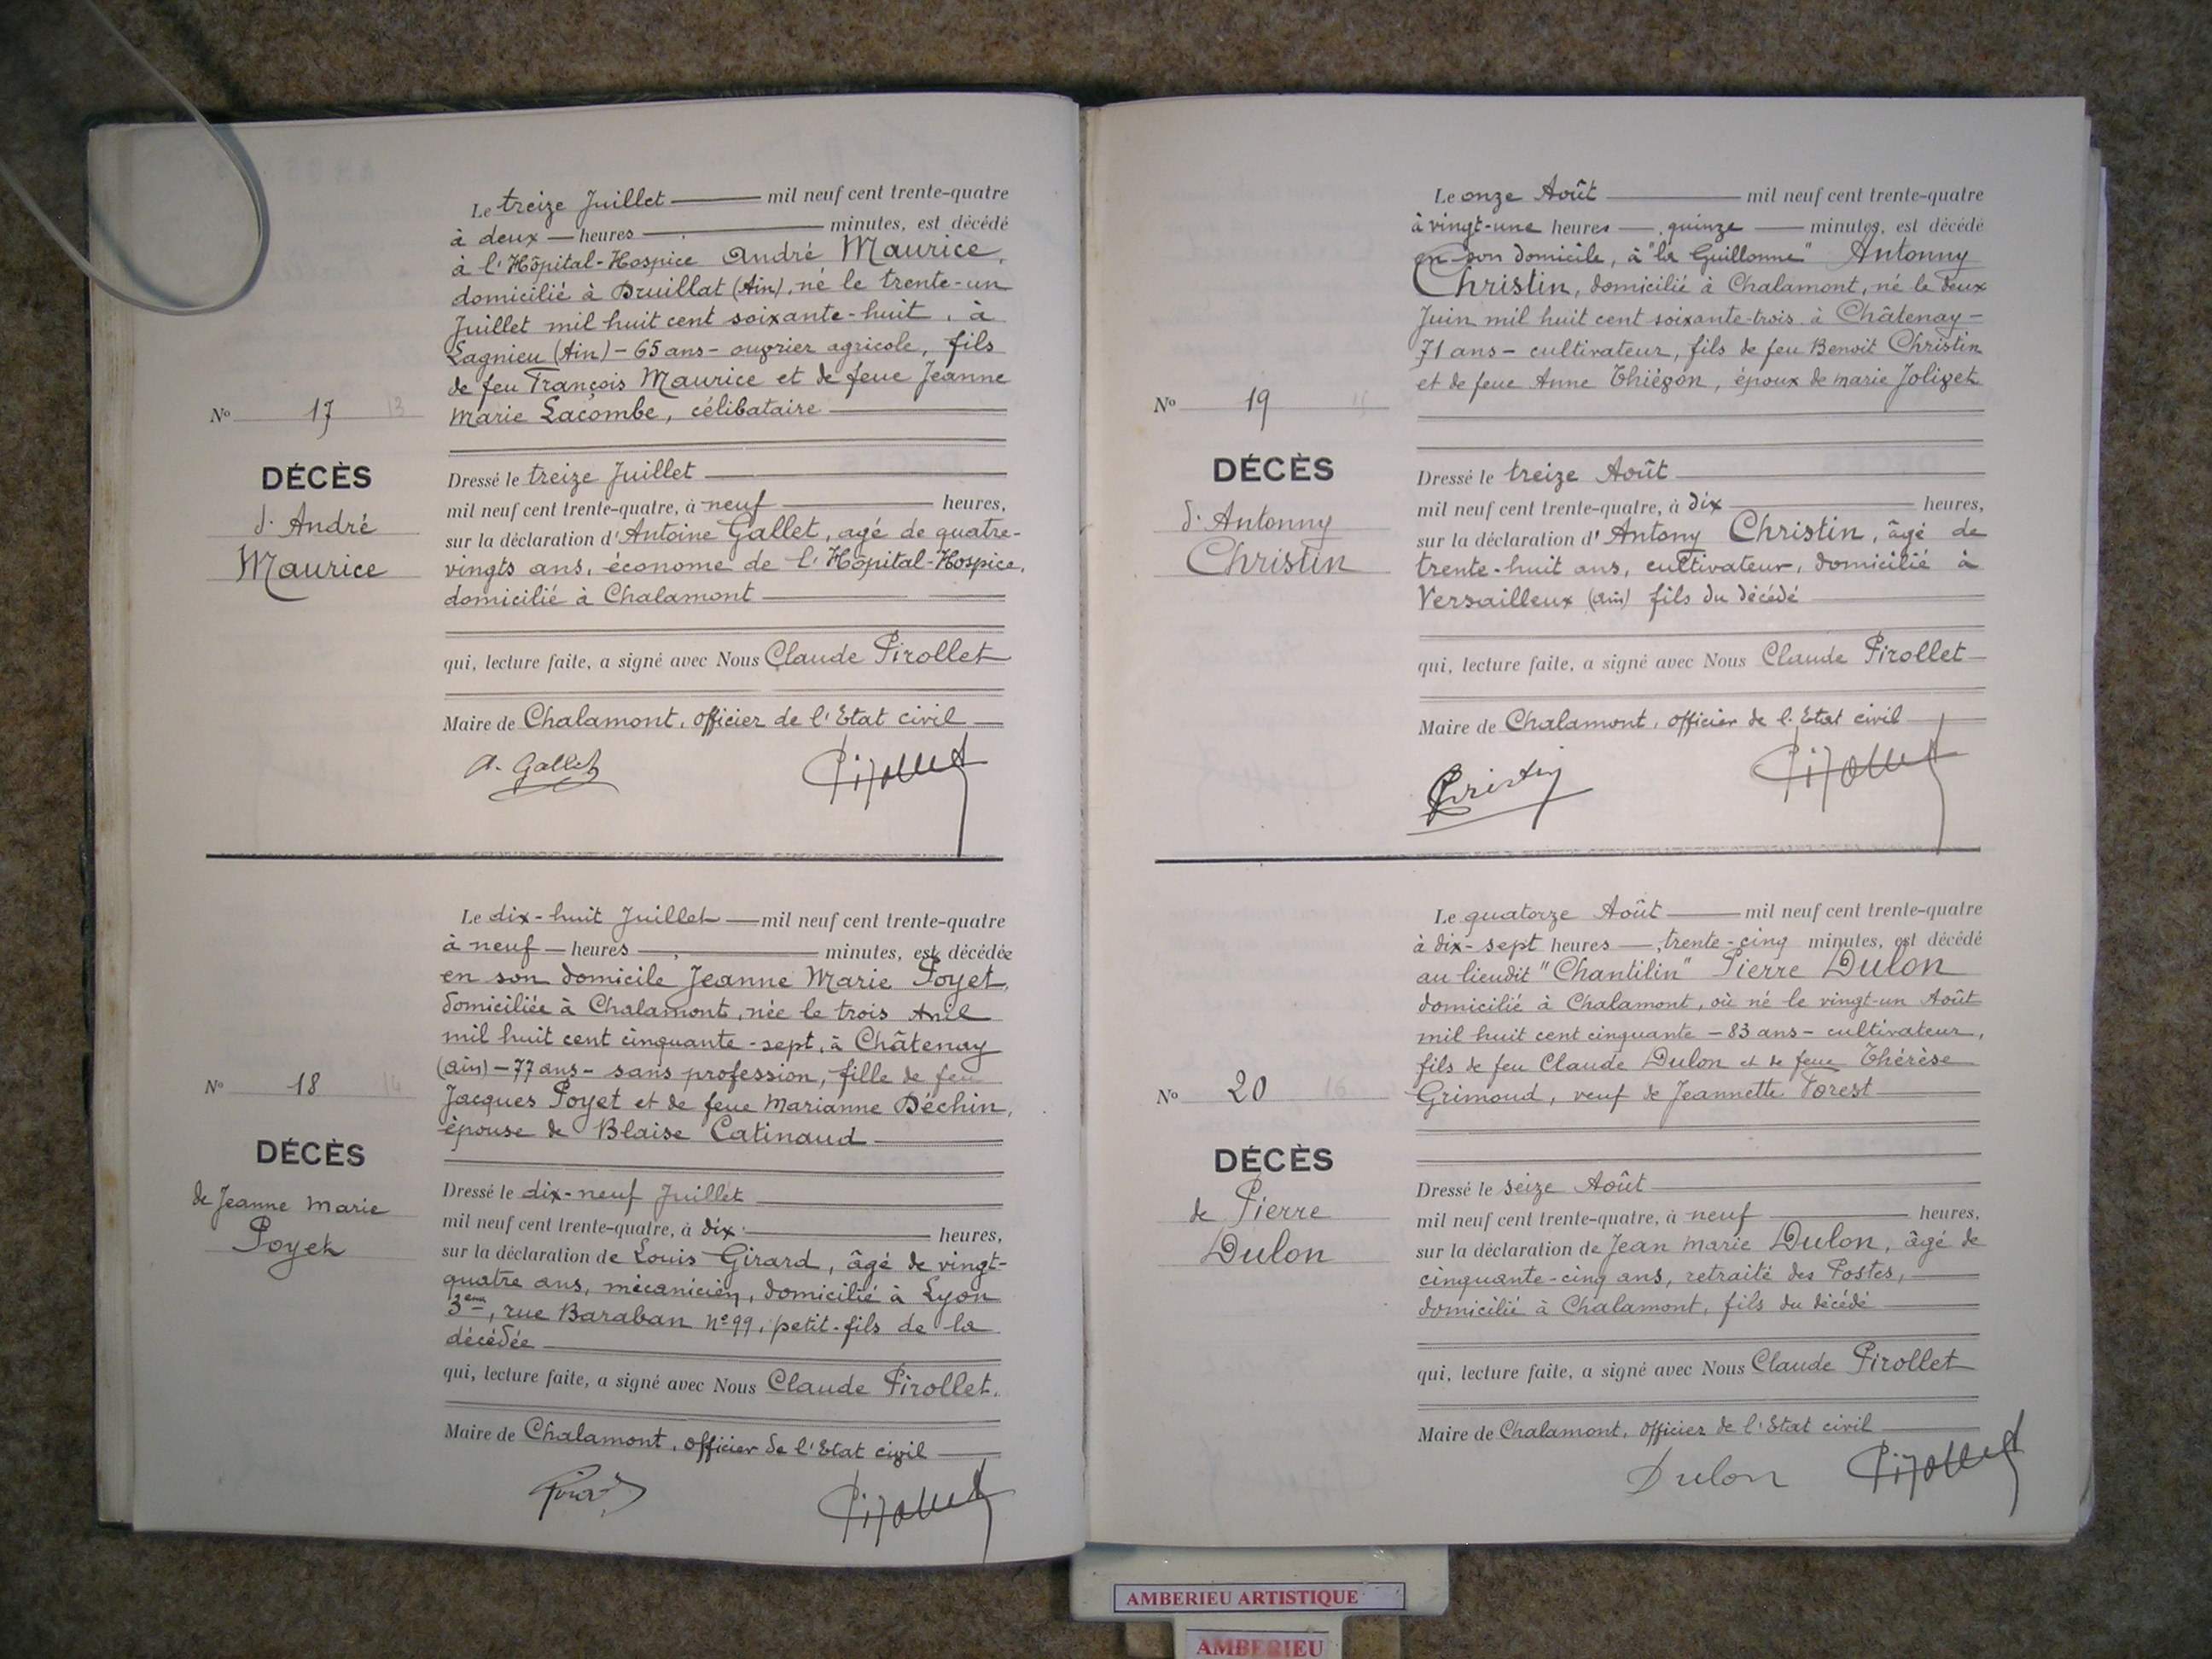 Le treize Juillet mil neuf cent trente-quatre
à deux heures minutes, est décédé
à l'Hôpital-Hospice André Maurice,
domicilié à Druillat (Ain), né le trente-un
Juillet mil huit cent soixante-huit, à
Lagnieu (Ain) - 65 ans - ouvrier agricole, fils
de feu François Maurice et de feue Jeanne
Marie Lacombe, célibataire
No 17 13
DÉCÈS
d'André
Maurice
Dressé le treize Juillet
mil neuf cent trente-quatre, à neuf heures,
sur la déclaration d'Antoine Gallet, agé de quatre-
vingts ans, économe de l'Hôpital-Hospice,
domicilié à Chalamont
qui, lecture faite, a signé avec Nous Claude Pirollet
Maire de Chalamont, officier de l'Etat civil
A. Gallet Pirollet
Le dix-huit Juillet mil neuf cent trente-quatre
à neuf heures minutes, est décédée
en son domicile Jeanne Marie Poyet,
domiciliée à Chalamont, née le trois Avril
mil huit cent cinquante-sept, à Châtenay
(Ain) - 77 ans - sans profession, fille de feu
Jacques Poyet et de feue Marianne Déchin,
épouse de Blaise Catinaud
No 18 14
DÉCÈS
de Jeanne Marie
Poyet
Dressé le dix-neuf Juillet
mil neuf cent trente-quatre, à dix heures,
sur la déclaration de Louis Girard, âgé de vingt-
quatre ans, mécanicien, domicilié à Lyon
3eme, rue Baraban no 99, petit-fils de la
décédée
qui, lecture faite, a signé avec Nous Claude Pirollet.
Maire de Chalamont, officier de l'Etat civil
Pirollet
Le onze Août mil neuf cent trente-quatre
à vingt-une heures quinze minutes, est décédé
en son domicile, à "la Guillonne" Antonny
Christin, domicilié à Chalamont, né le deux
Juin mil huit cent soixante-trois à Châtenay -
71 ans - cultivateur, fils de feu Benoit Christin
et de feue Anne Thiégon, époux de Marie Joliget
No 19 15
DÉCÈS
d'Antonny
Christin
Dressé le treize Août
mil neuf cent trente-quatre, à dix heures,
sur la déclaration d'Antony Christin, âgé de
trente-huit ans, cultivateur, domicilié à
Versailleux (Ain) fils du décédé
qui, lecture faite, a signé avec Nous Claude Pirollet
Maire de Chalamont, officier de l'Etat civil
Christin Pirollet
Le quatorze Août mil neuf cent trente-quatre
à dix-sept heures trente-cinq minutes, est décédé
au lieudit "Chantilin" Pierre Dulon
domicilié à Chalamont, où né le vingt-un Août
mil huit cent cinquante - 83 ans - cultivateur,
fils de feu Claude Dulon et de feue Thérèse
Grimoud, veuf de Jeannette Forest
No 20 16
DÉCÈS
de Pierre
Dulon
Dressé le seize Août
mil neuf cent trente-quatre, à neuf heures,
sur la déclaration de Jean Marie Dulon, âgé de
cinquante-cinq ans, retraité des Postes,
domicilié à Chalamont, fils du décédé
qui, lecture faite, a signé avec Nous Claude Pirollet
Maire de Chalamont, officier de l'Etat civil
Dulon Pirollet
AMBERIEU ARTISTIQUE
AMBERIEU